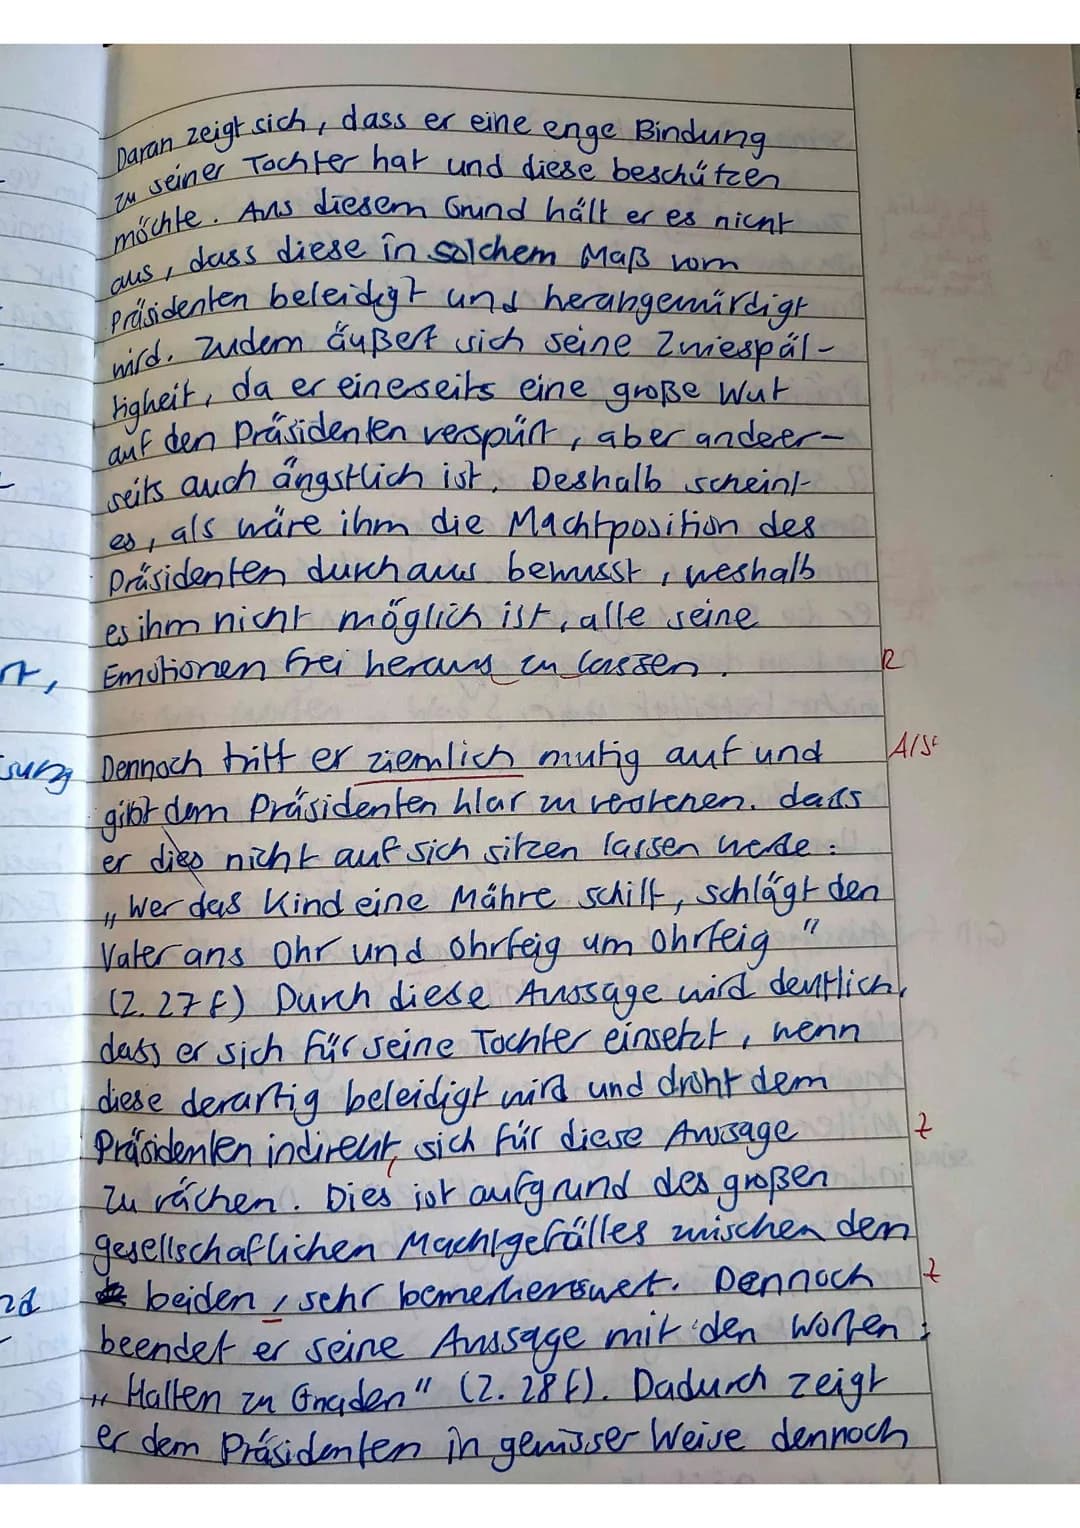 Daran zeigt sich, dass er eine enge Bindung
zu seiner Tochter hat und diese beschützen
möchte. Aus diesem Grund hält er es nicht
aus, dass diese in solchem Maß vom
Präsidenten beleidigt und herabgewürdigt
wird. Zudem äußert sich seine Zwiespäl-
tigkeit, da er einerseits eine große Wut
auf den Präsidenten verspürt, aber anderer-
seits auch ängstlich ist. Deshalb scheint
es, als wäre ihm die Machtposition des
Präsidenten durchaus bewusst, weshalb
es ihm nicht möglich ist, alle seine
Emotionen frei heraus zu lassen. R
Dennoch tritt er ziemlich mutig auf und A/St
gibt dem Präsidenten klar zu verstehen, dass
er dies nicht auf sich sitzen lassen werde:
„Wer das Kind eine Mähre schilt, schlägt den
Vater ans Ohr und Ohrfeig um Ohrfeig"
(Z. 27 f) Durch diese Aussage wird deutlich,
dass er sich für seine Tochter einsetzt, wenn
diese derartig beleidigt wird und droht dem
Präsidenten indirekt, sich für diese Aussage Z
zu rächen. Dies ist aufgrund des großen
gesellschaftlichen Machtgefälles zwischen den
beiden, sehr bemerkenswert. Dennoch Z
beendet er seine Aussage mit den Worten:
„Halten zu Gnaden" (Z. 28 f). Dadurch zeigt
er dem Präsidenten in gewisser Weise dennoch